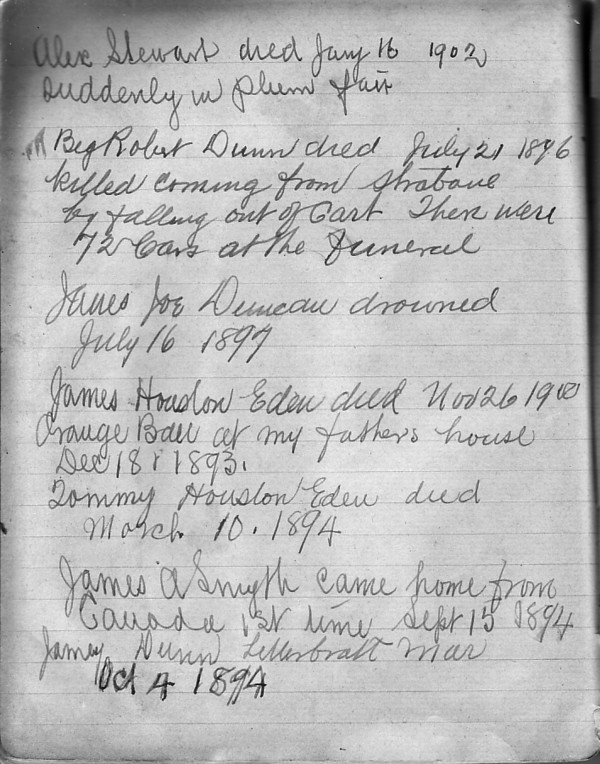 Alex Stewart died Jany 16 1902
suddenly in plum fair
Big Robert Dunn died July 21 1896
killed coming from Strabane
by falling out of Cart There were
72 Cars at the funeral
James Joe Duncan drowned
July 16 1897
James Houston Eden died Nov 26 1900
Orange Ball at my father's house
Dec 18 1893.
Tommy Houston Eden died
March 10. 1894
James A Smyth came home from
Canada 1st time Sept 15 1894
James Dunn Letterbratt Mar
Oct 4 1894